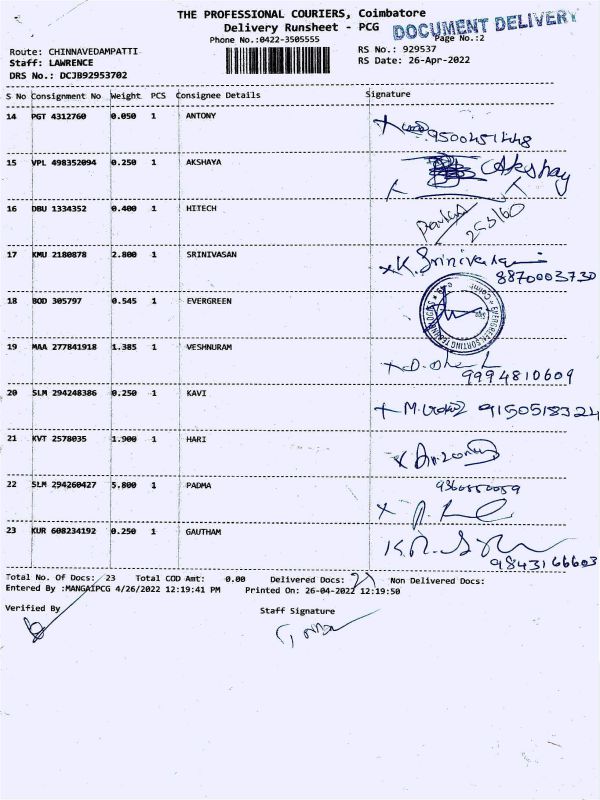 THE PROFESSIONAL COURIERS, Coimbatore
Delivery Runsheet - PCG
DOCUMENT DELIVERY
Phone No.:0422-3505555
Page No.:2
Route: CHINNAVEDAMPATTI
RS No.: 929537
Staff: LAWRENCE
RS Date: 26-Apr-2022
DRS No.: DCJB92953702
S No Consignment No Weight PCS Consignee Details Signature
14 PGT 4312760 0.050 1 ANTONY
9500451448
15 VPL 498352094 0.250 1 AKSHAYA Akshay
16 DBU 1334352 0.400 1 HITECH
17 KMU 2180878 2.800 1 SRINIVASAN K. Srinivasan
8870003730
18 BOD 305797 0.545 1 EVERGREEN
19 MAA 277841918 1.385 1 VESHNURAM
9994810609
20 SLM 294248386 0.250 1 KAVI
9150518324
21 KVT 2578035 1.900 1 HARI
22 SLM 294260427 5.800 1 PADMA
23 KUR 608234192 0.250 1 GAUTHAM
9843166603
Total No. Of Docs: 23 Total COD Amt: 0.00 Delivered Docs: Non Delivered Docs:
Entered By :MANGAIPCG 4/26/2022 12:19:41 PM Printed On: 26-04-2022 12:19:50
Verified By
Staff Signature